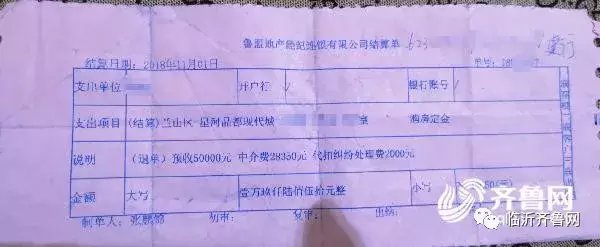 鲁盟地产经纪连锁有限公司结算单
结算日期：2018年11月01日 单号：
支出单位 开户行 / 银行账号 /
支出项目 (结算)兰山区-星河品都现代城 室 购房定金
说明 （退单）预收50000元 中介费28350元 代扣纠纷处理费2000元
金额 大写 壹万玖仟陆佰伍拾元整 小写
制单人： 初审： 复审： 出纳：
齐鲁网
@临沂齐鲁网